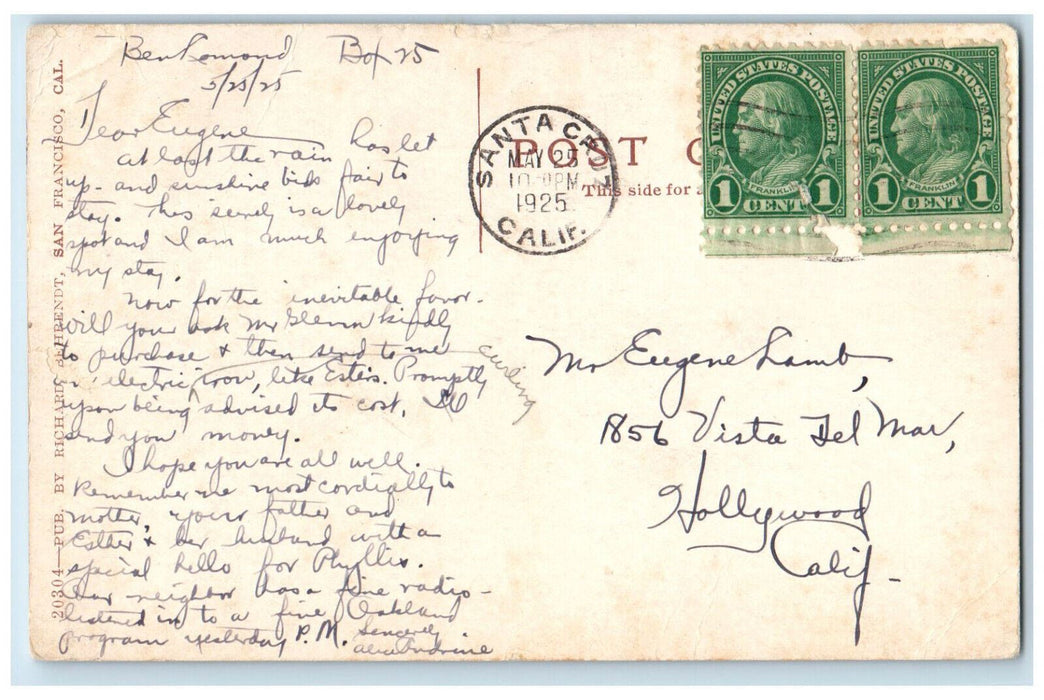 Ben Lomond Box 25
5/25/25
Dear Eugene
At last the rain has let
up - and sunshine bids fair to
stay. This surely is a lovely
spot and I am much enjoying
my stay.
Now for the inevitable favor.
Will you ask Mr Glenn kindly
to purchase & then send to me
electric curling iron, like Esters. Promptly
upon being advised its cost, I'll
send you money.
I hope you are all well.
Remember me most cordially to
mother, your father and
Esther & her husband with a
special hello for Phyllis.
Our neighbor has a fine radio -
listened in to a fine Oakland
program yesterday P.M.
Sincerely
Alexandrine
20304—PUB. BY RICHARD BEHRENDT, SAN FRANCISCO, CAL.
SANTA CRUZ
MAY 25
PM
1925
CALIF.
POST C
This side for a
UNITED STATES POSTAGE
FRANKLIN
1 CENT 1
UNITED STATES POSTAGE
FRANKLIN
1 CENT 1
Mr Eugene Lamb,
1856 Vista Del Mar,
Hollywood
Calif-